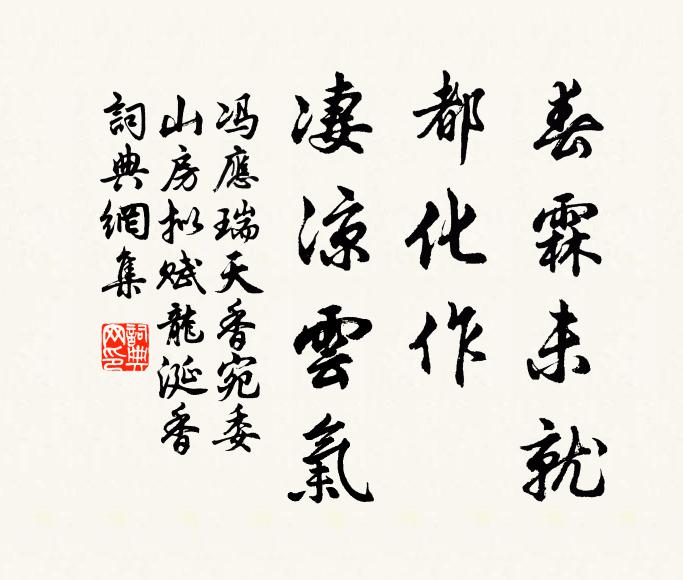 春霖未就
都化作
凄涼雲氣
冯應瑞天香宛委
山房拟赋龍涎香
詞典網集
詞典网印